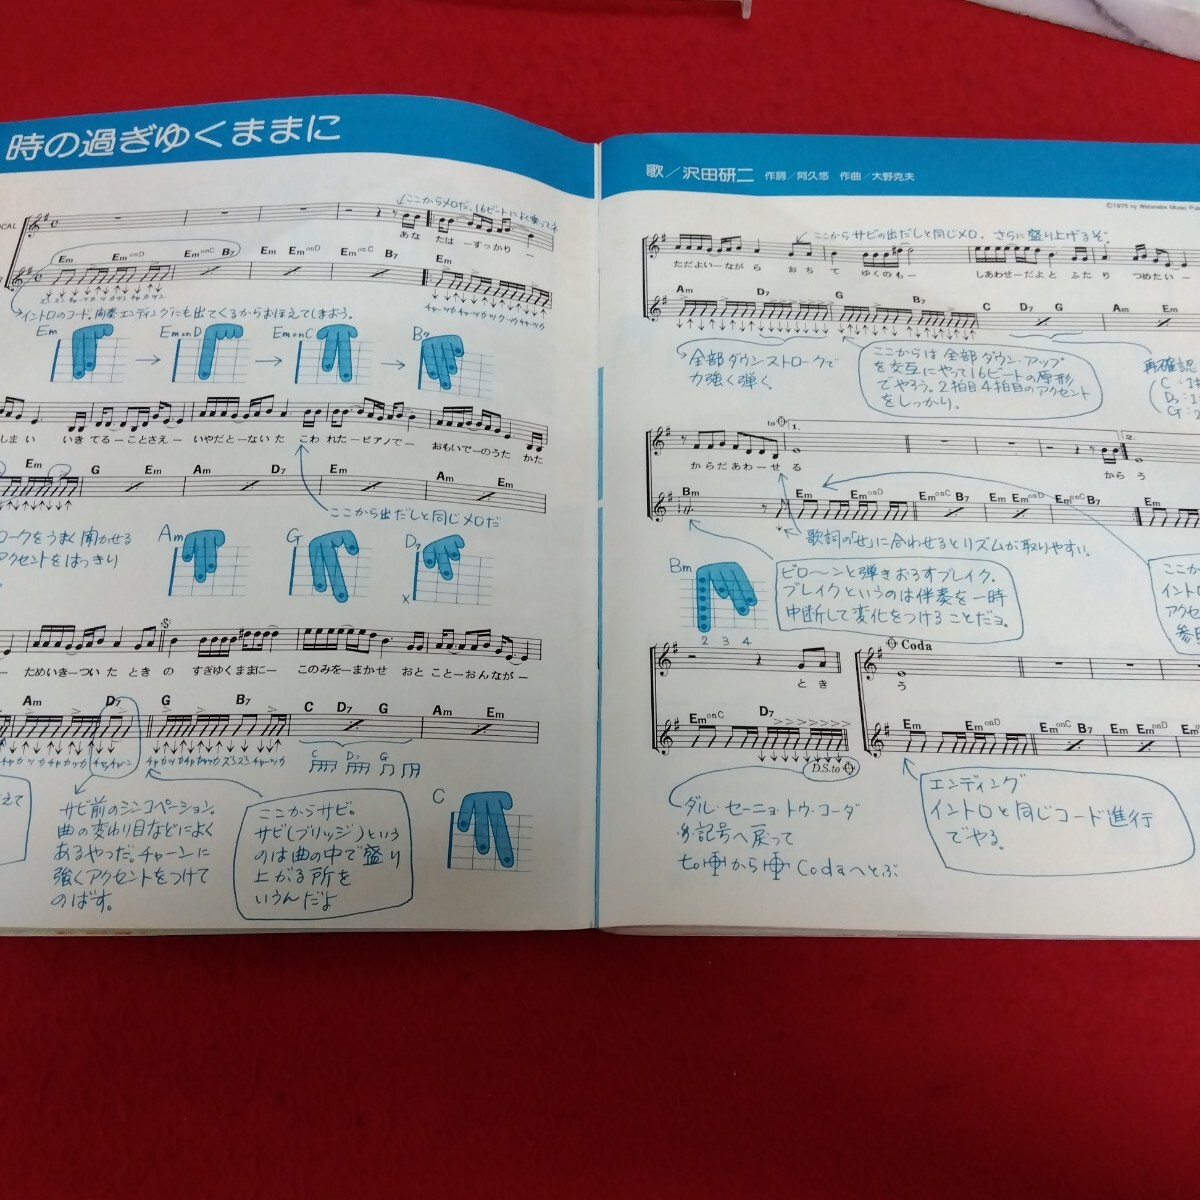 時の過ぎゆくままに
ここからメロだ。16ビートによく乗ってネ
あな たは ー すっかり ー
Em EmonD EmonC B7 Em EmonD EmonC B7 Em
イントロのコード。間奏エンディングにも出てくるからおぼえてしまおう。
Em → EmonD → EmonC → B7
しまい いきてるーことさえー いやだとーないた こわれたーピアノでー おもいでーのうた かた
Em G Em Am D7 Em Am Em
ここから出だしと同じメロだ
ロークをうまく聞かせる
アクセントをはっきり
Am G D7
x
ためいきーついた ときの すぎゆくままにー このみをーまかせ おとことーおんながー
Am D7 G B7 C D7 G Am Em
C D7 G
サビ前のシンコペーション。
曲の変わり目などによく
あるやつだ。チャーンに
強くアクセントをつけて
のばす。
ここからサビ。
サビ(ブリッジ)という
のは曲の中で盛り
上がる所を
いうんだよ
C
歌／沢田研二 作詞／阿久悠 作曲／大野克夫
©1975 by Watanabe Music Pub
ここからサビの出だしと同じメロ。さらに盛り上げるぞ。
ただよいーながら おちて ゆくのもー しあわせーだよと ふたり つめたいー
Am D7 G B7 C D7 G Am Em
全部ダウンストロークで
力強く弾く。
ここからは全部ダウン・アップ
を交互にやって16ビートの原形
でやろう。2拍目4拍目のアクセント
をしっかり。
再確認
C:1
D7:1
G:
to
1.
2.
からだあわーせる
から う
Bm Em EmonD EmonC B7 Em EmonD EmonC B7 Em
歌詞の「せ」に合わせるとリズムが取りやすい。
Bm
2 3 4
ビローンと弾きおろすブレイク。
ブレイクというのは伴奏を一時
中断して変化をつけることだヨ。
ここか
イントロ
アクセ
参照
Coda
とき
う
EmonC D7 Em EmonD EmonC B7 Em EmonD Em
D.S.to
ダル・セーニョ・トゥ・コーダ
記号へ戻って
to から Codaへとぶ
エンディング
イントロと同じコード進行
でやる。